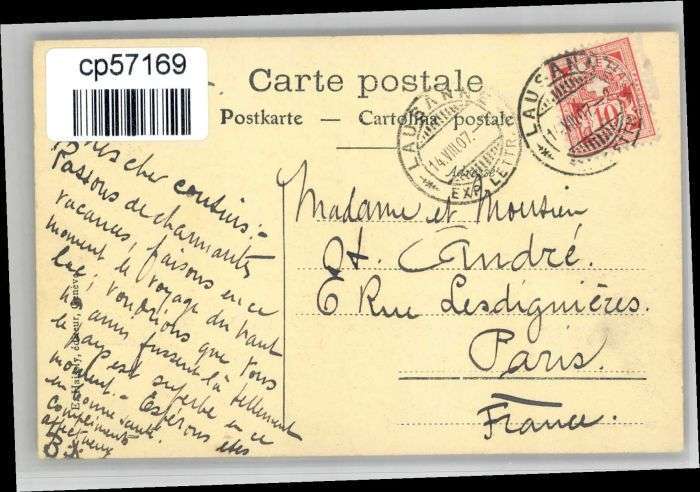 cp57169
Carte postale
Postkarte — Cartolina postale
LAUSANNE
14.VIII.07.
EXP. LETTR.
LAUSANNE
10
Mes chers cousins:-
Passons de charmantes
vacances, faisons en ce
moment le voyage du haut
lac; voudrions que vous
nos amis fussent là tellement
le pays est superbe en ce
moment. - Espérons êtes
en bonne santé.
Compliments
affectueux
Madame et Monsieur
St. André.
6 Rue Lesdiguières.
Paris.
France.
éditeur, Genève